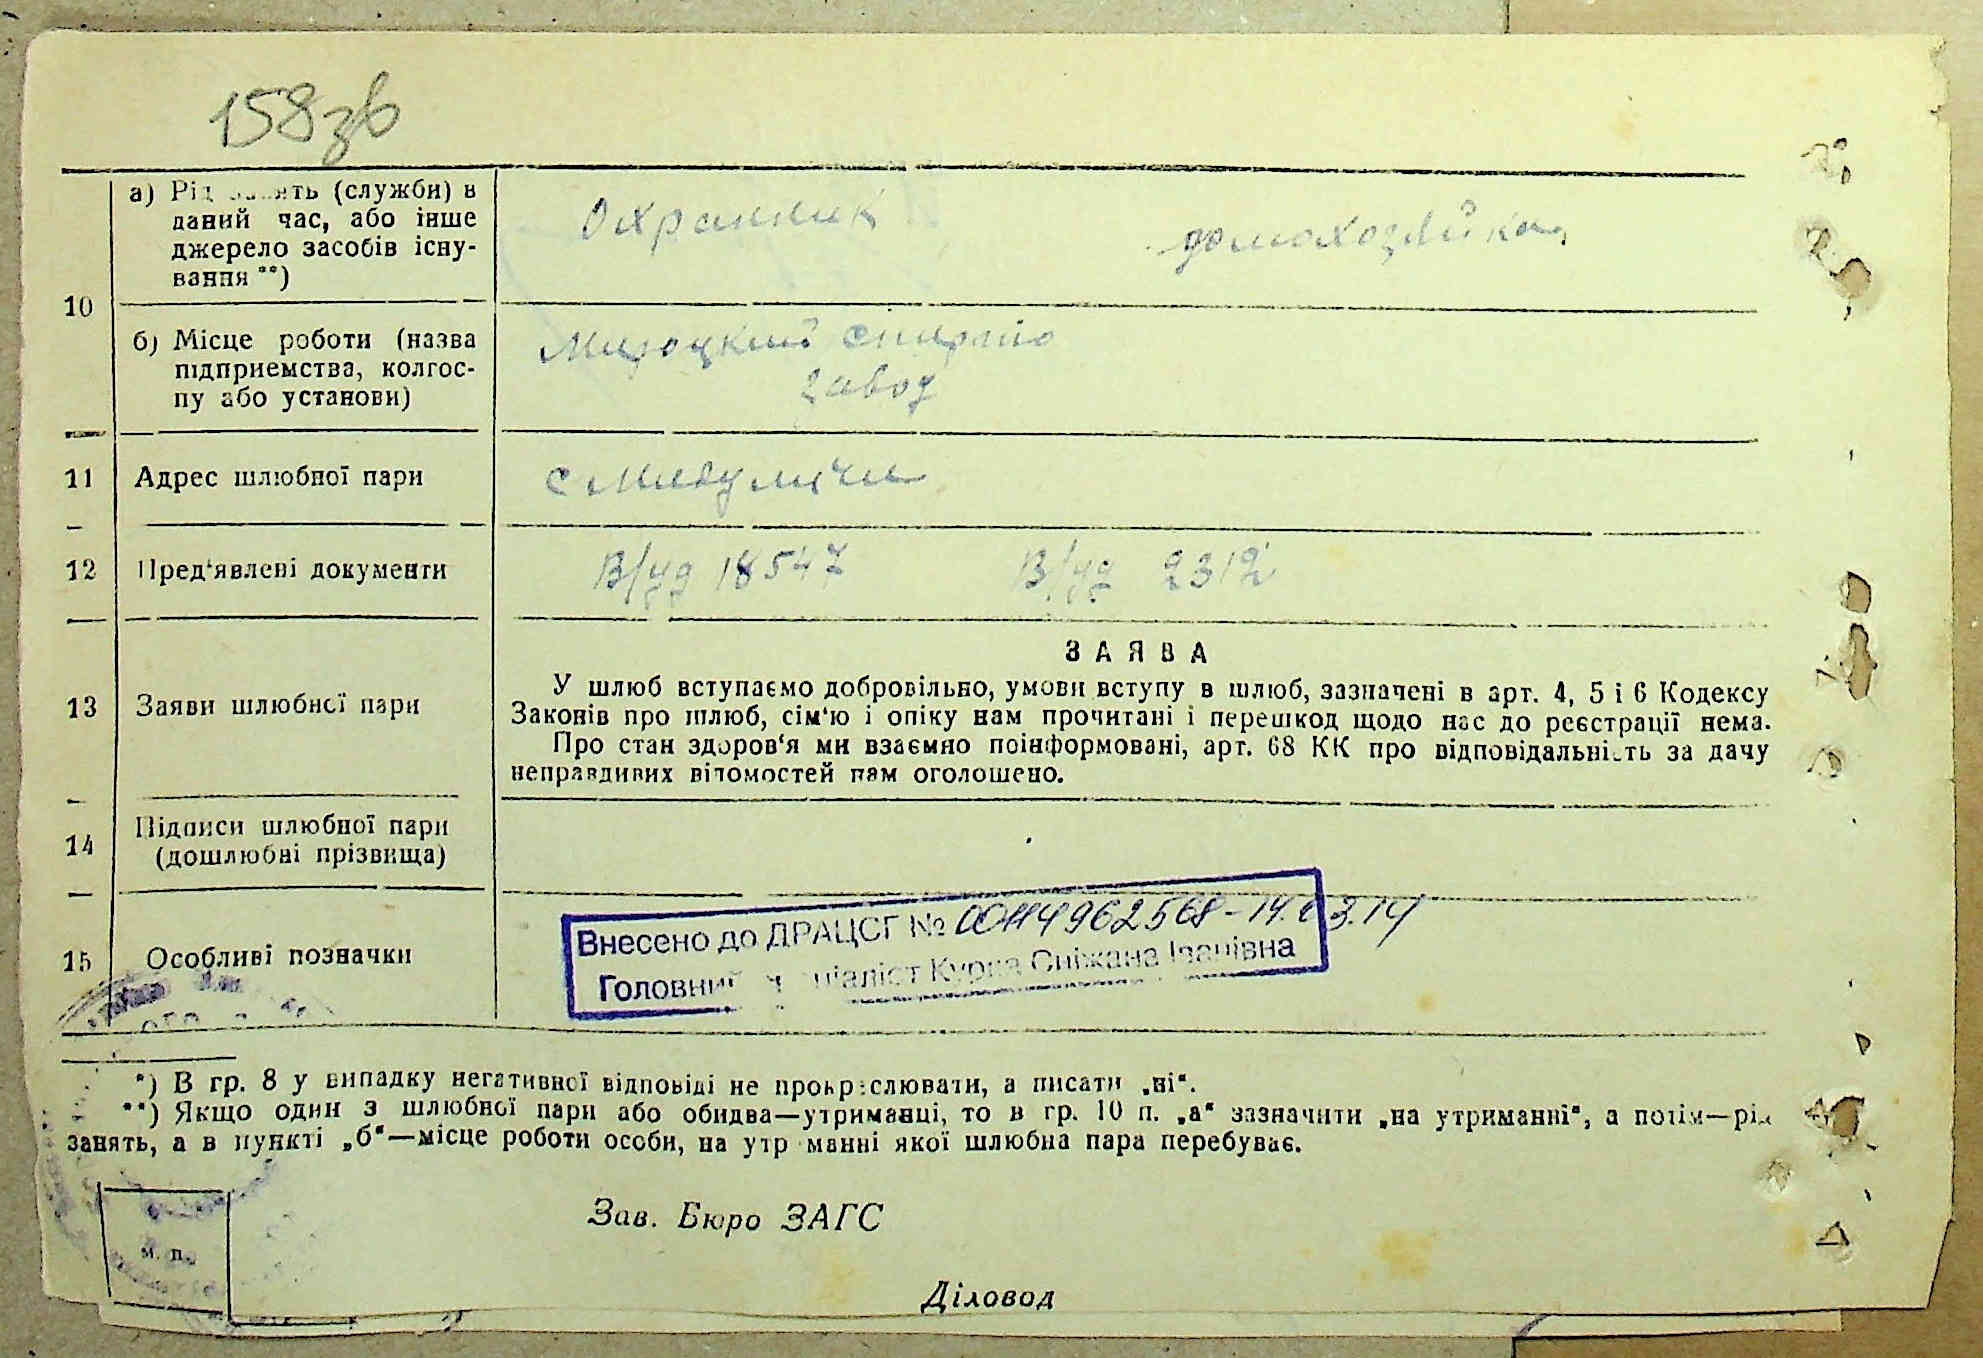 158зв
а) Рід занять (служби) в
даний час, або інше
джерело засобів існу-
вання **)
Охранник домохозяйка
10
б) Місце роботи (назва
підприємства, колгос-
пу або установи)
Мироцкий спирто
завод
11 Адрес шлюбної пари
с Микуличи
12 Пред‘явлені документи
В/уд 18547 В/уд 2312
ЗАЯВА
13 Заяви шлюбної пари
У шлюб вступаємо добровільно, умови вступу в шлюб, зазначені в арт. 4, 5 і 6 Кодексу
Законів про шлюб, сім‘ю і опіку нам прочитані і перешкод щодо нас до реєстрації нема.
Про стан здоров‘я ми взаємно поінформовані, арт. 68 КК про відповідальність за дачу
неправдивих відомостей нам оголошено.
14 Підписи шлюбної пари
(дошлюбні прізвища)
15 Особливі позначки
Внесено до ДРАЦСГ № 00114962568-14.03.14
Головний спеціаліст Сніжана Іванівна
*) В гр. 8 у випадку негативної відповіді не прокреслювати, а писати „ні“.
**) Якщо один з шлюбної пари або обидва—утриманці, то в гр. 10 п. „а“ зазначити „на утриманні“, а потім—рід
занять, а в пункті „б“—місце роботи особи, на утриманні якої шлюбна пара перебуває.
Зав. Бюро ЗАГС
м. п.
Діловод